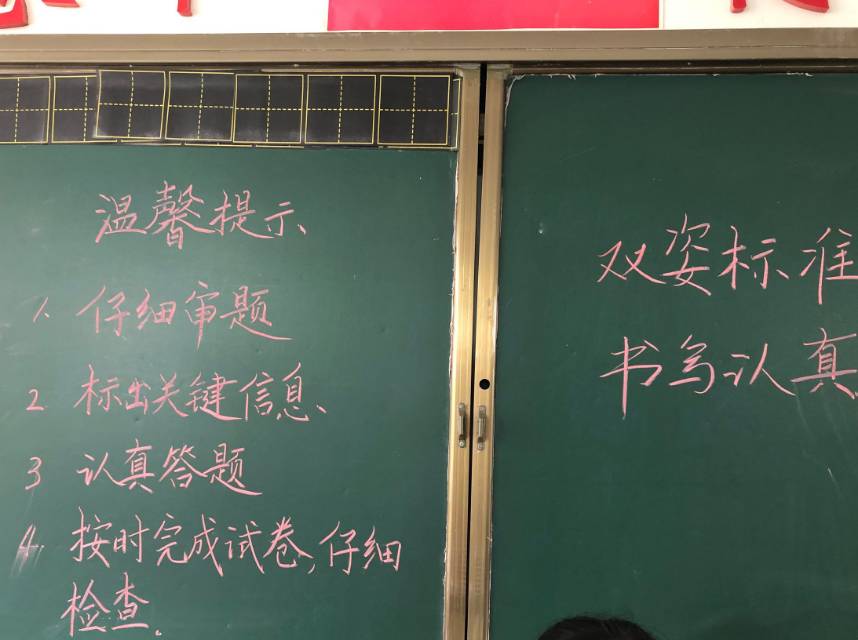 温馨提示
1. 仔细审题
2. 标出关键信息
3 认真答题
4. 按时完成试卷,仔细
检查.
双姿标准
书写认真